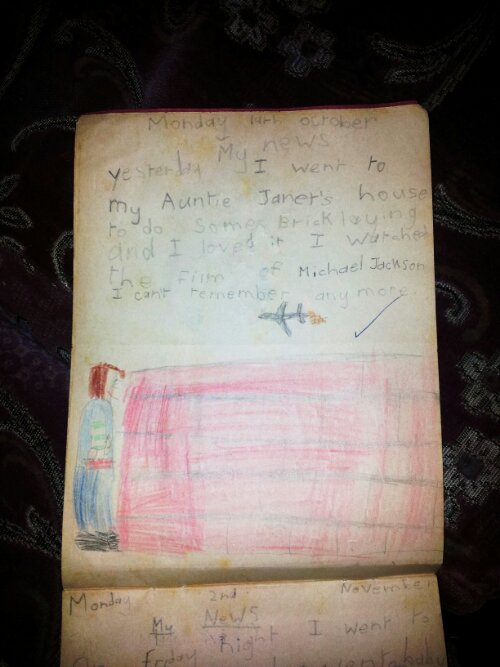 Monday 14th october
My news
yesterday I went to
my Auntie Janet's house
to do some Bricklaying
and I loved it I watched
the Film of Michael Jackson
I cant remember any more.
Monday 2nd November
My News
On Friday night I went to